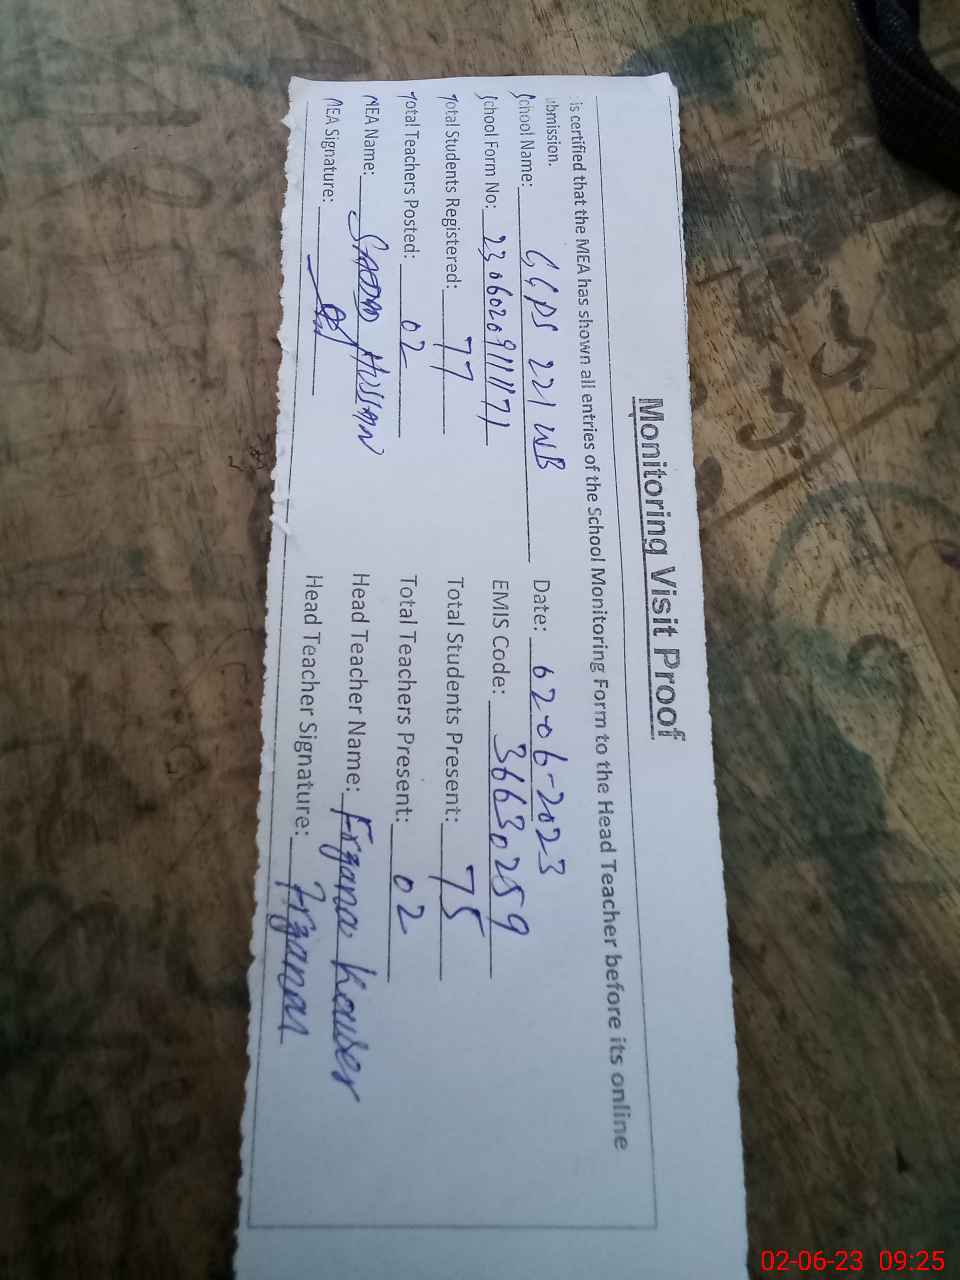 Monitoring Visit Proof
is certified that the MEA has shown all entries of the School Monitoring Form to the Head Teacher before its online
ubmission.
School Name: GGPS 221 WB Date: 02-06-2023
School Form No: 230602091171 EMIS Code: 36630259
Total Students Registered: 77 Total Students Present: 75
Total Teachers Posted: 02 Total Teachers Present: 02
MEA Name: HUSSAN Head Teacher Name: Frzana Kouser
MEA Signature: Head Teacher Signature: Frzana
02-06-23 09:25